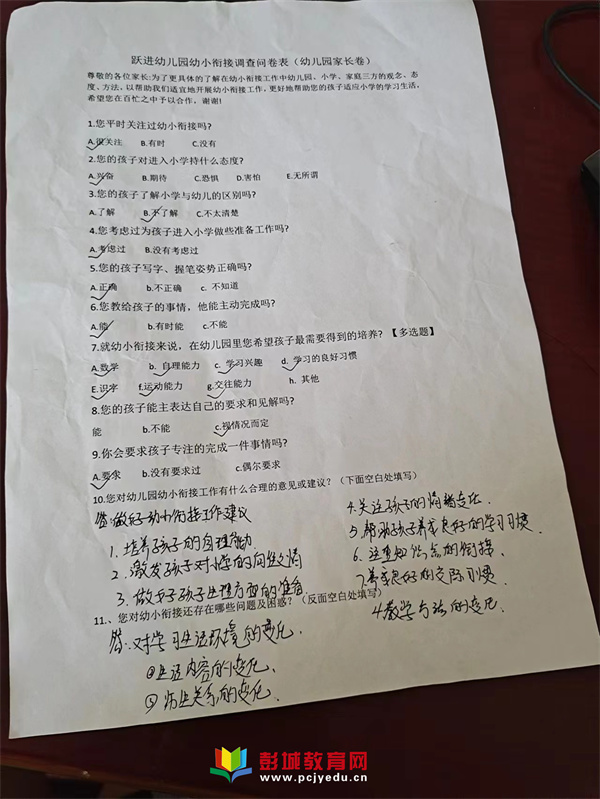 跃进幼儿园幼小衔接调查问卷表（幼儿园家长卷）
尊敬的各位家长:为了更具体的了解在幼小衔接工作中幼儿园、小学、家庭三方的观念、态
度、方法，以帮助我们适宜地开展幼小衔接工作，更好地帮助您的孩子适应小学的学习生活，
希望您在百忙之中予以合作，谢谢!
1.您平时关注过幼小衔接吗?
A.很关注 B.有时 C.没有
2.您的孩子对进入小学持什么态度?
A.兴奋 B.期待 C.恐惧 D.害怕 E.无所谓
3.您的孩子了解小学与幼儿的区别吗?
A.了解 B.不了解 C.不太清楚
4.您考虑过为孩子进入小学做些准备工作吗?
A.考虑过 B.没有考虑过
5.您的孩子写字、握笔姿势正确吗?
A.正确 b.不正确 c.不知道
6.您教给孩子的事情，他能主动完成吗?
A.能 b.有时能 c.不能
7.就幼小衔接来说，在幼儿园里您希望孩子最需要得到的培养? 【多选题】
A.数学 b.自理能力 c.学习兴趣 d.学习的良好习惯
E.识字 f.运动能力 g.交往能力 h.其他
8.您的孩子能主表达自己的要求和见解吗?
能 b.不能 c.视情况而定
9.你会要求孩子专注的完成一件事情吗?
A.要求 b.没有要求过 c.偶尔要求
10.您对幼儿园幼小衔接工作有什么合理的意见或建议? （下面空白处填写）
答:做好幼小衔接工作建议
1.培养孩子的自理能力
2.激发孩子对小学的向往之情
3.做好孩子生理方面的准备
4.关注孩子的情绪变化.
5.帮助孩子养成良好的学习习惯
6.注重知识点的衔接
7.养成良好的交际习惯
11.、您对幼小衔接还存在哪些问题及困惑? （反面空白处填写）
答:对学习生活环境的变化
②生活内容的变化
③师生关系的变化.
4.教学方法的变化.
彭城教育网
www.pcjyedu.cn